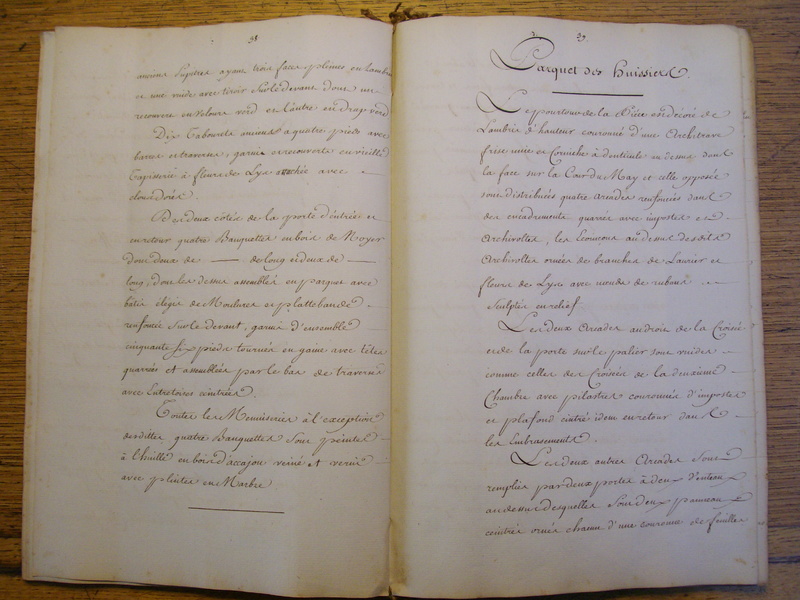 38
anciens Pupitres ayant trois faces pleines en Lambris
et une vuide avec tiroir sur le devant dont un
recouvert en Velours verd et l'autre en drap verd
Dix Tabourets anciens a quatre pieds avec
barres et traverses, garnis et recouverts en vieille
Tapisserie à fleurs de Lys attachée avec
clous dorés.
Des deux côtés de la porte d'entrée et
en retour quatre Banquettes en bois de Noyer
dont deux de — de long et deux de —
long, dont les dessus assemblés en parquet avec
bâtis élégis de Moulures et plattebande
renfoncée sur le devant, garnis d'ensemble
cinquante six pieds tournés en gaine avec têtes
quarrées et assemblées par le bas de traverses
avec Entretoises ceintrées.
Toutes les Menuiseries à l'exception
desdittes quatre Banquettes sont peintes
à l'huille en bois d'accajou veiné et vernis
avec plintes en Marbre
39
Parquet des huissiers.
Le pourtour de la Pièce est décoré de
Lambris d'hauteur couronné d'une Architrave
frise unie et Corniche à denticule au dessus dont
la face sur la Cour de May et celle opposée
sont distribuées quatre arcades renfoncées dans
des encadrements quarrés avec impostes et
Archivoltes, les Ecoinçons au dessus desdits
Archivoltes ornés de branches de Laurier et
fleurs de Lys avec nœuds de rubans
Sculptés en relief.
Les deux Arcades au droit de la Croisée
et de la porte sur le palier sont vuides
comme celles des Croisées de la deuxième
Chambre avec pilastres couronnés d'impostes
et plafond cintré idem en retour dans
les Embrasements.
Les deux autres Arcades sont
remplies par deux portes à deux Venteaux
au dessus desquelles sont deux panneaux
ceintrés ornés chacun d'une couronne de feuilles